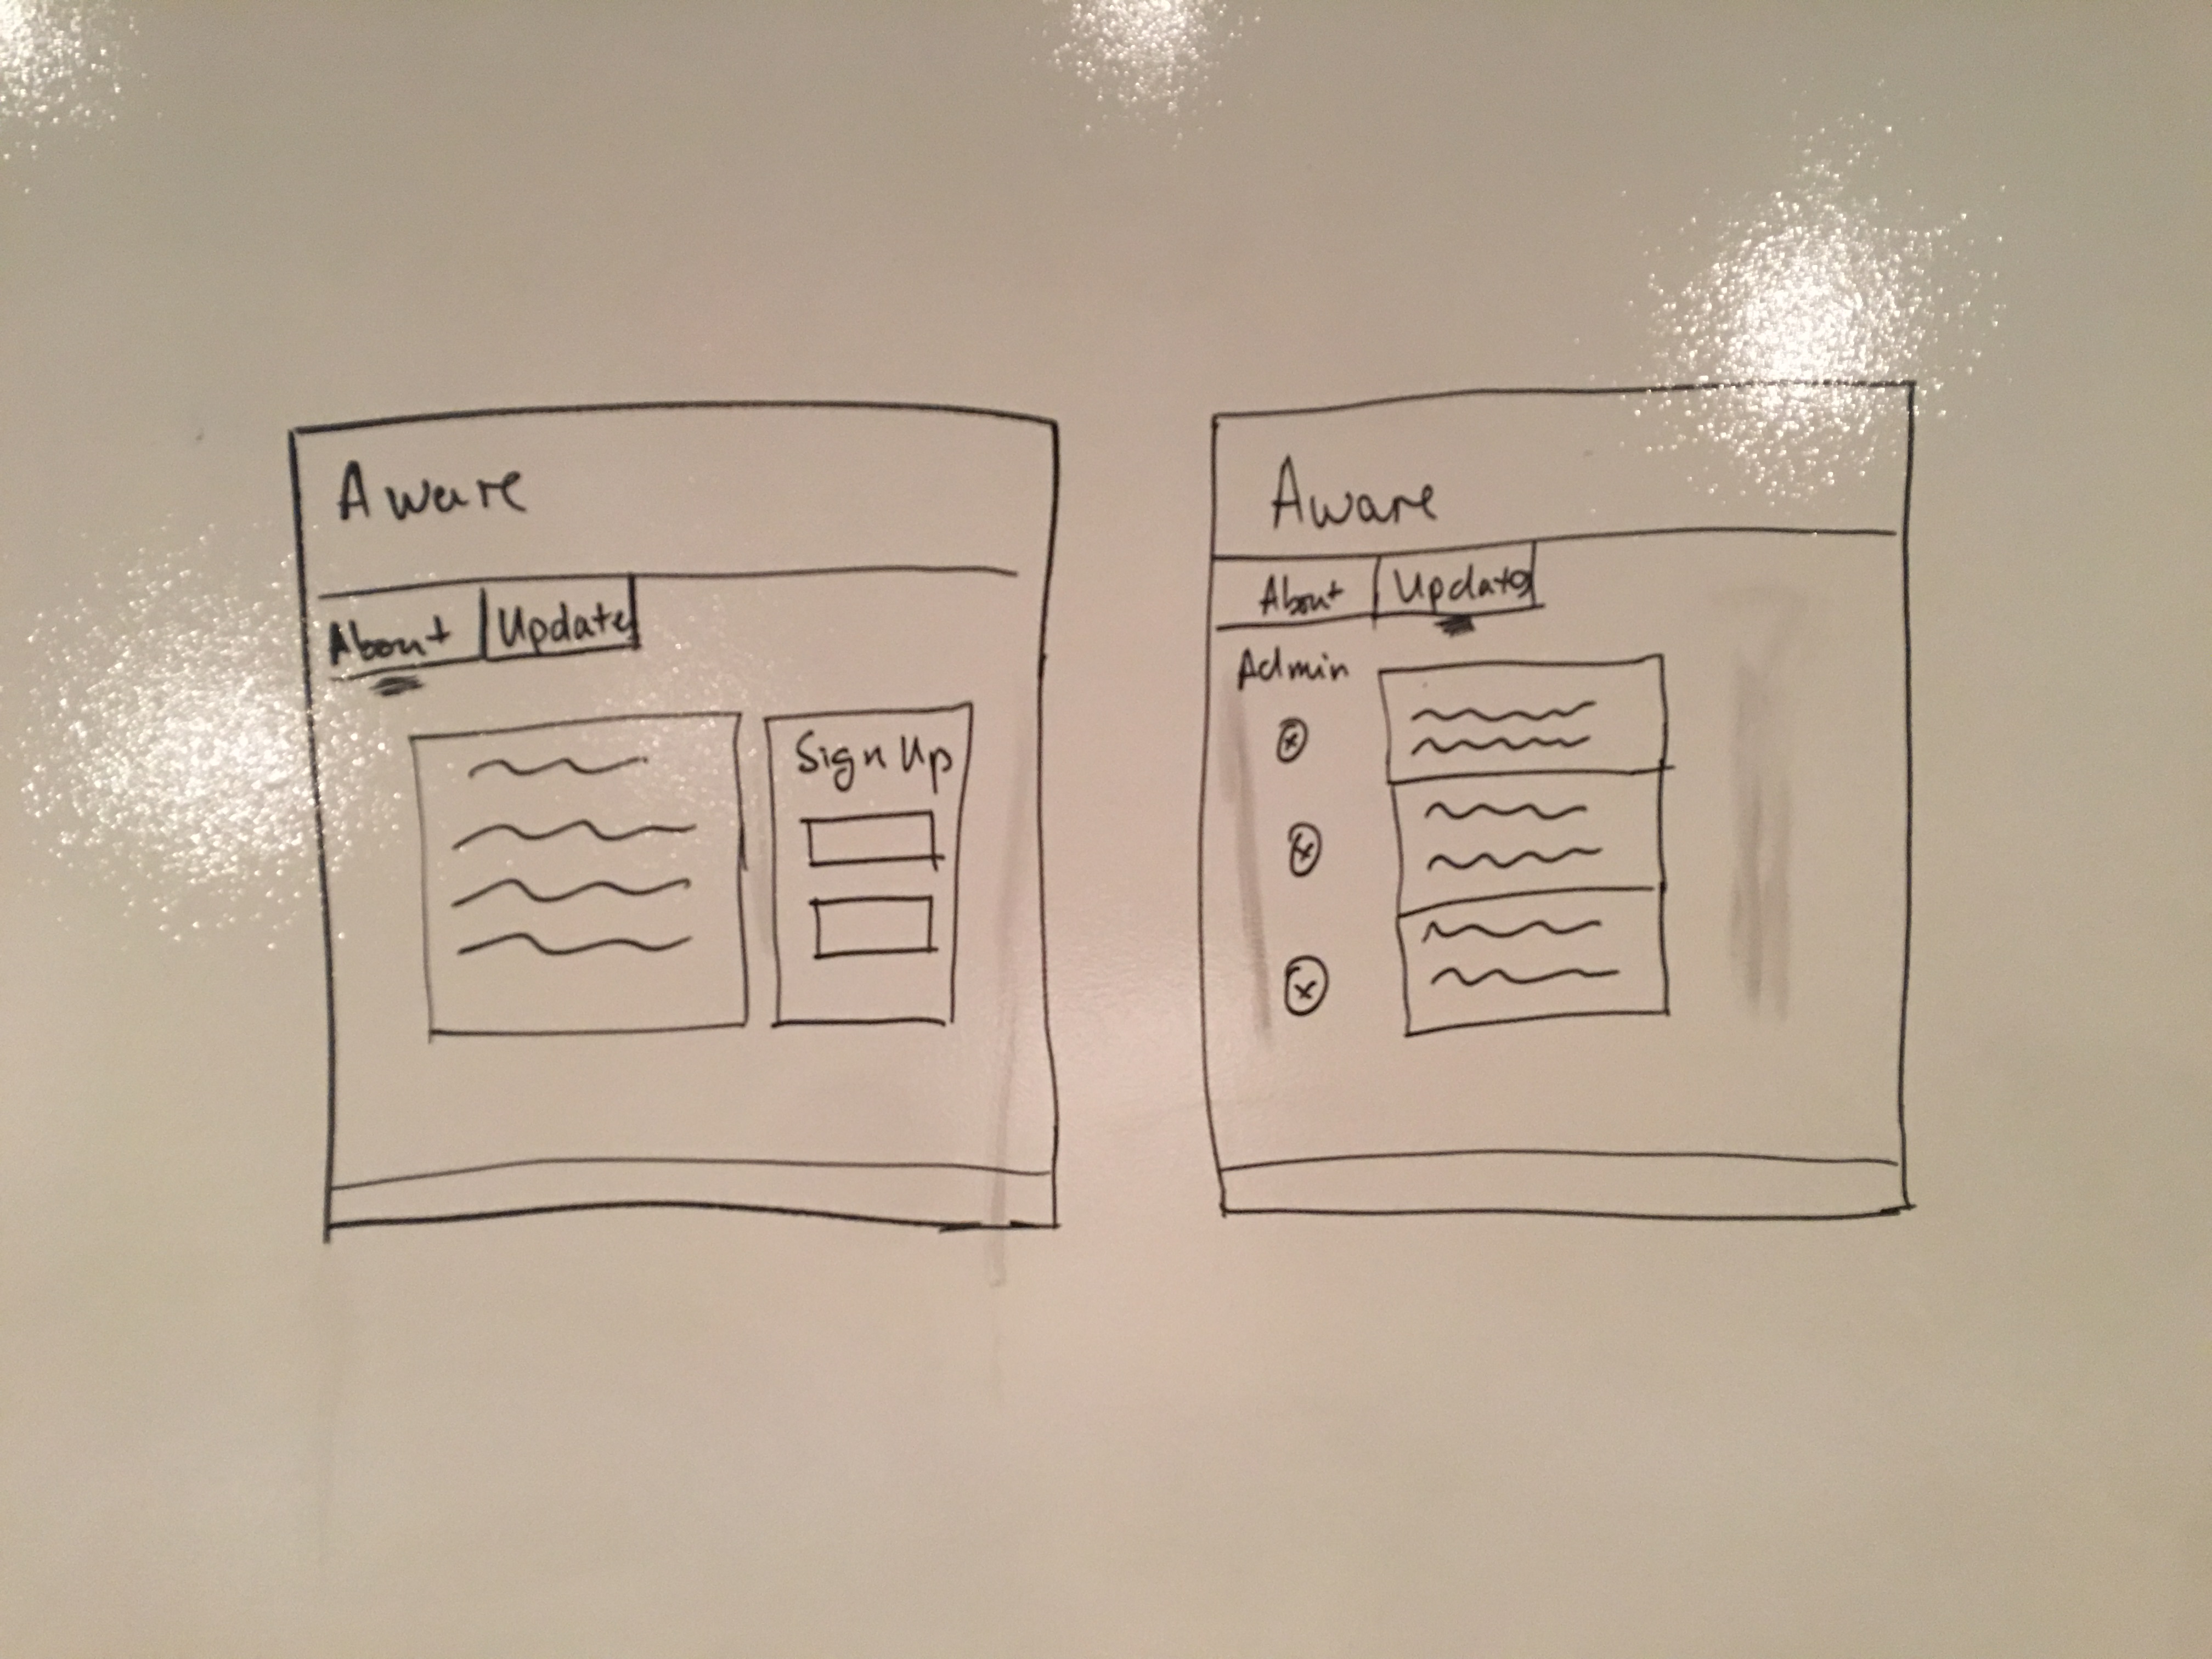 Aware
About Updates
Sign Up
Aware
About Updates
Admin